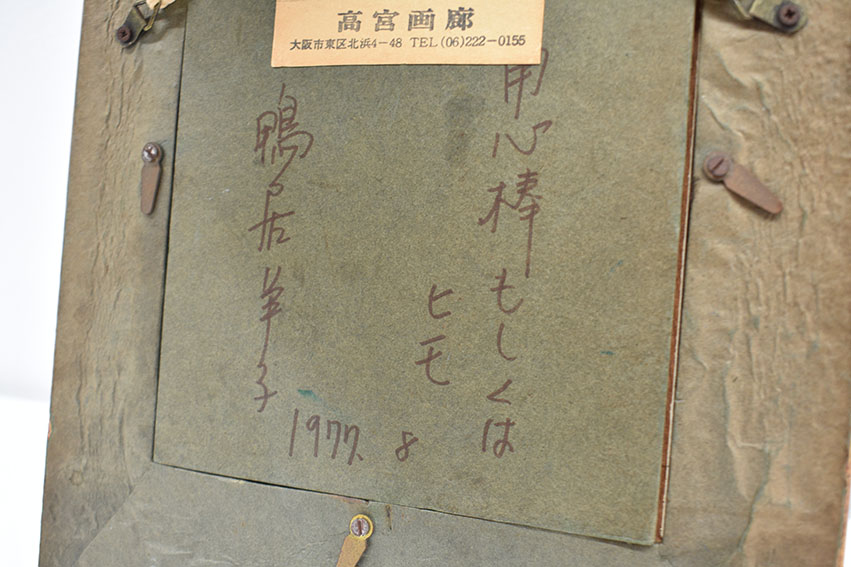 高宮画廊
大阪市東区北浜4-48 TEL(06)222-0155
用心棒もしくは
ヒモ
鴨居羊子
1977. 8